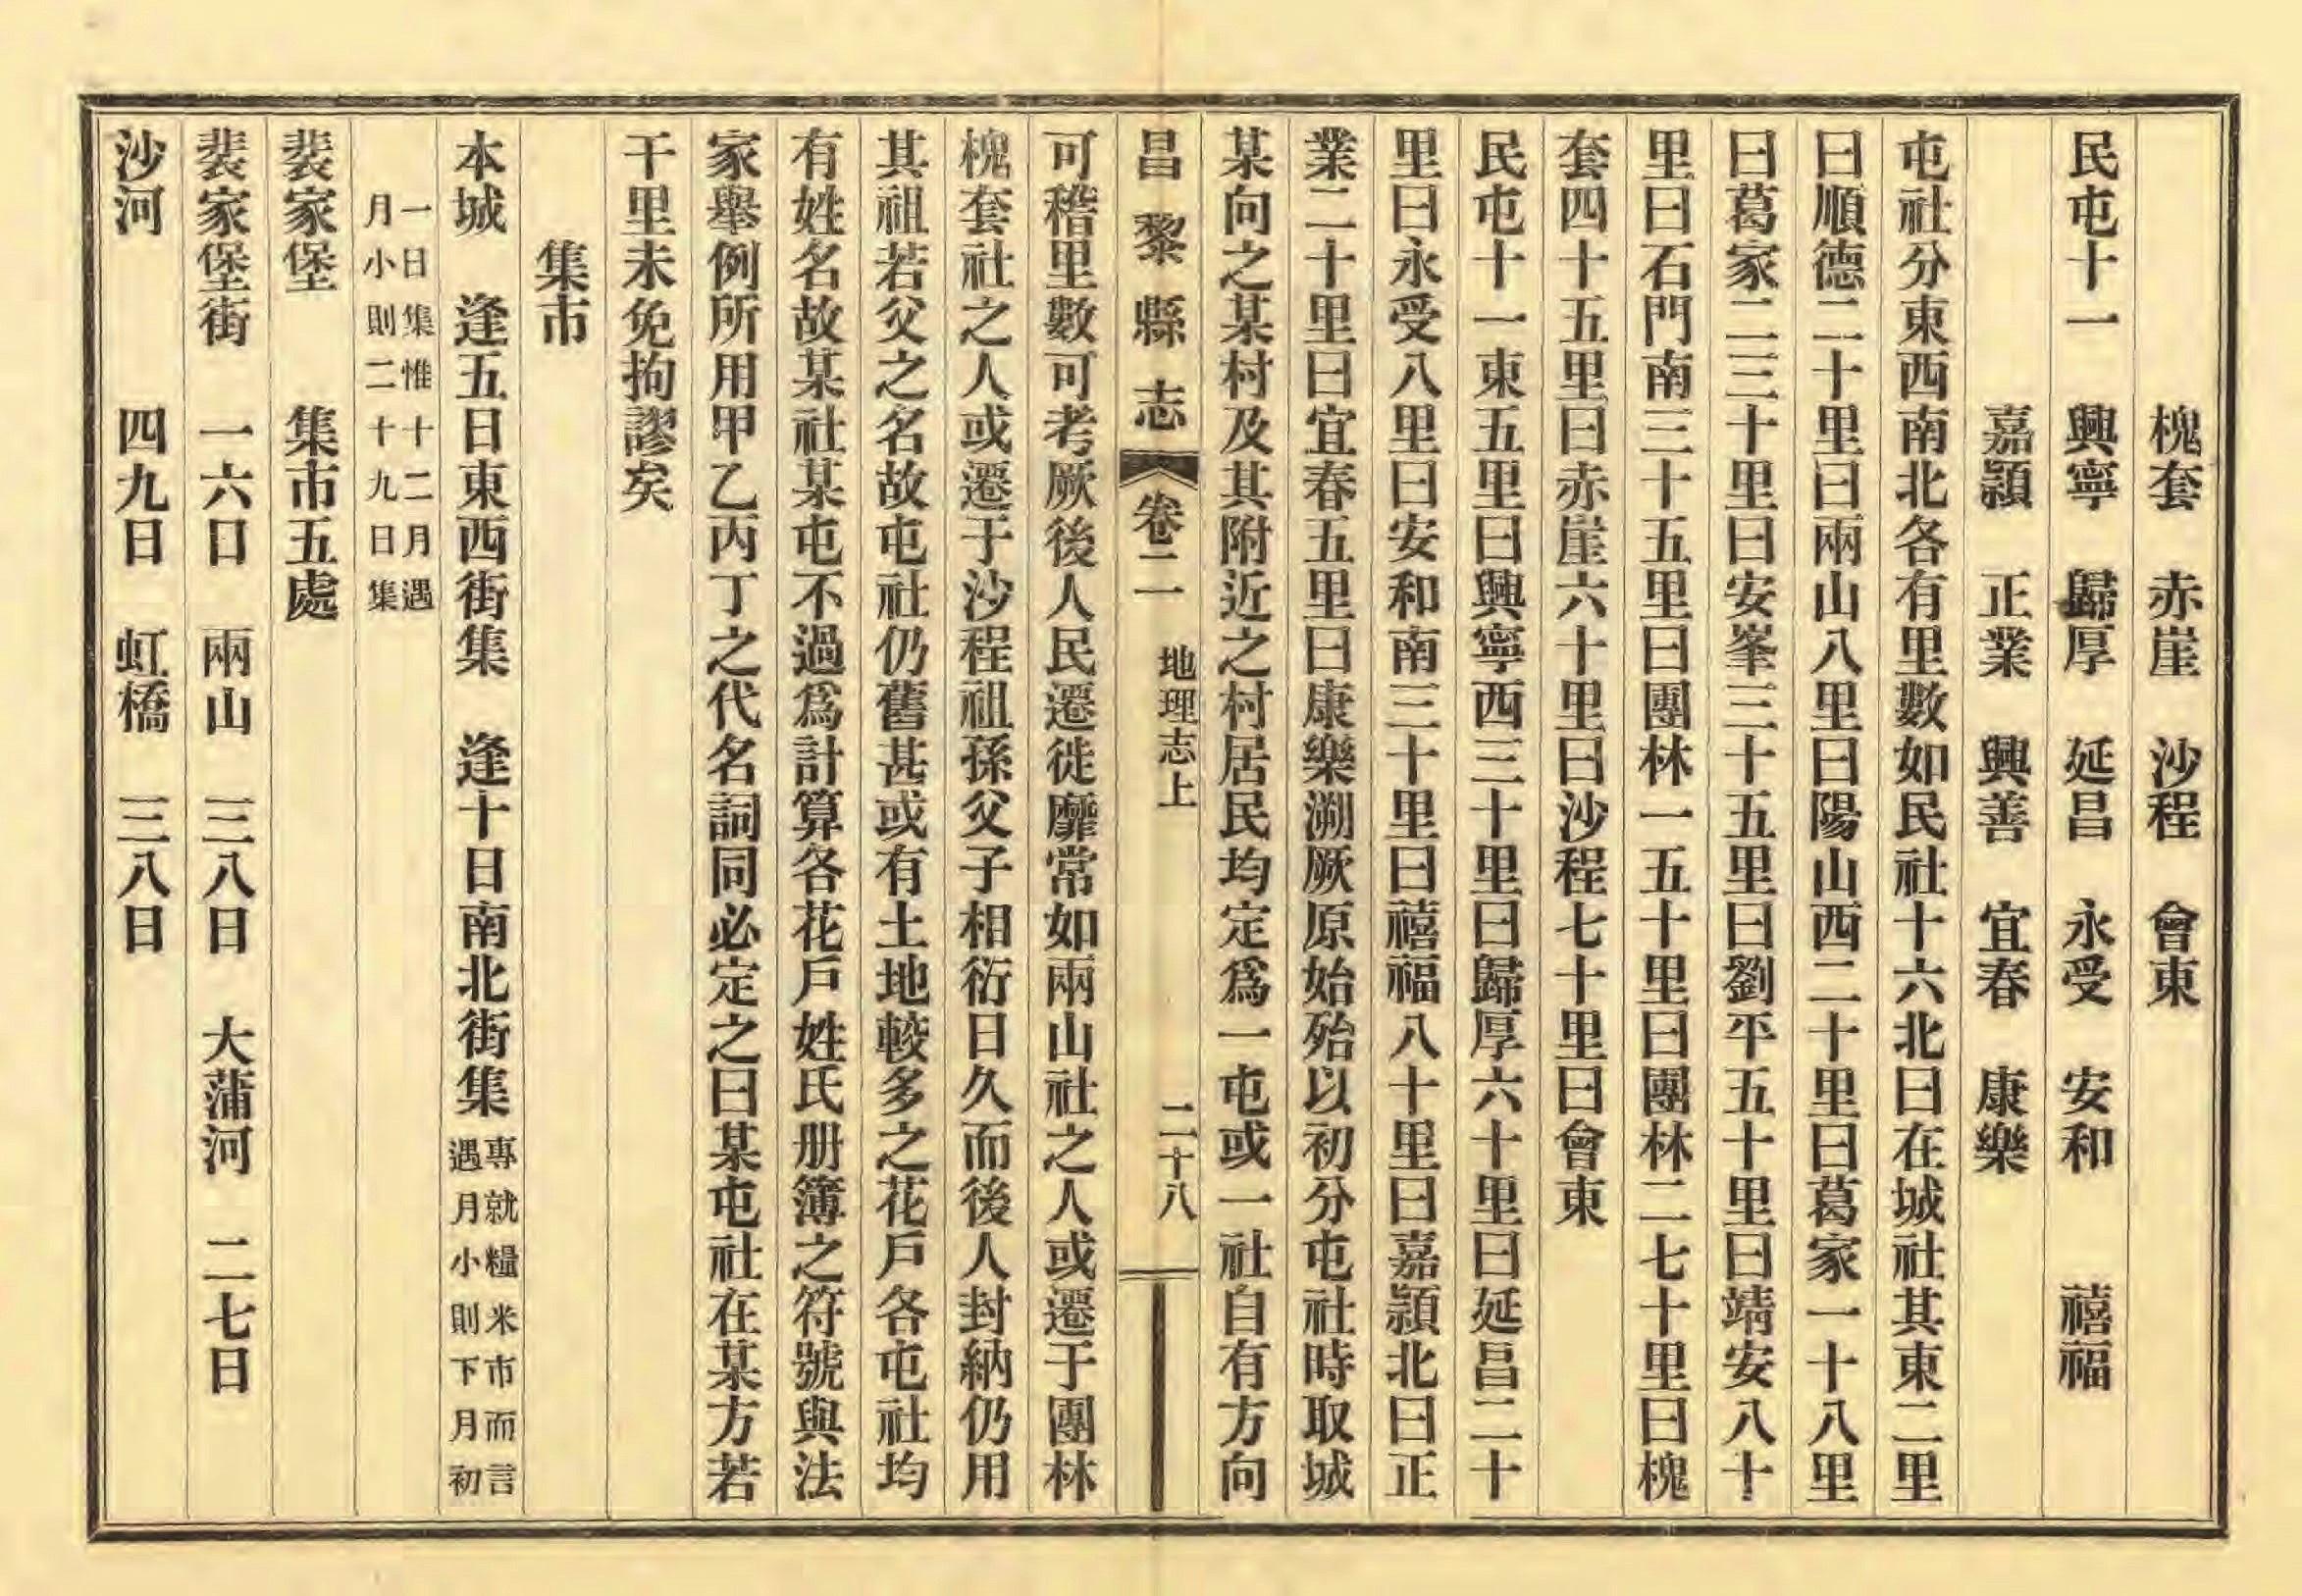 槐套　赤崖　沙程　會東
民屯十一　興寧　歸厚　延昌　永受　安和　禧福
嘉潁　正業　興善　宜春　康樂
屯社分東西南北各有里數如民社十六北曰在城社其東二里
曰順德二十里曰兩山八里曰陽山西二十里曰葛家一十八里
曰葛家二三十里曰安峯三十五里曰劉平五十里曰靖安八十
里曰石門南三十五里曰團林一五十里曰團林二七十里曰槐
套四十五里曰赤崖六十里曰沙程七十里曰會東
民屯十一東五里曰興寧西三十里曰歸厚六十里曰延昌二十
里曰永受八里曰安和南三十里曰禧福八十里曰嘉潁北曰正
業二十里曰宜春五里曰康樂溯厥原始殆以初分屯社時取城
某向之某村及其附近之村居民均定爲一屯或一社自有方向
昌黎縣志　卷二　地理志上　二十八
可稽里數可考厥後人民遷徙靡常如兩山社之人或遷于團林
槐套社之人或遷于沙程祖孫父子相衍日久而後人封納仍用
其祖若父之名故屯社仍舊甚或有土地較多之花戶各屯社均
有姓名故某社某屯不過爲計算各花戶姓氏册簿之符號與法
家舉例所用甲乙丙丁之代名詞同必定之曰某屯社在某方若
干里未免拘謬矣
集市
本城　逢五日東西街集　逢十日南北街集
專就糧米市而言
遇月小則下月初
一日集惟十二月遇
月小則二十九日集
裴家堡　集市五處
裴家堡街　一六日　兩山　三八日　大蒲河　二七日
沙河　四九日　虹橋　三八日